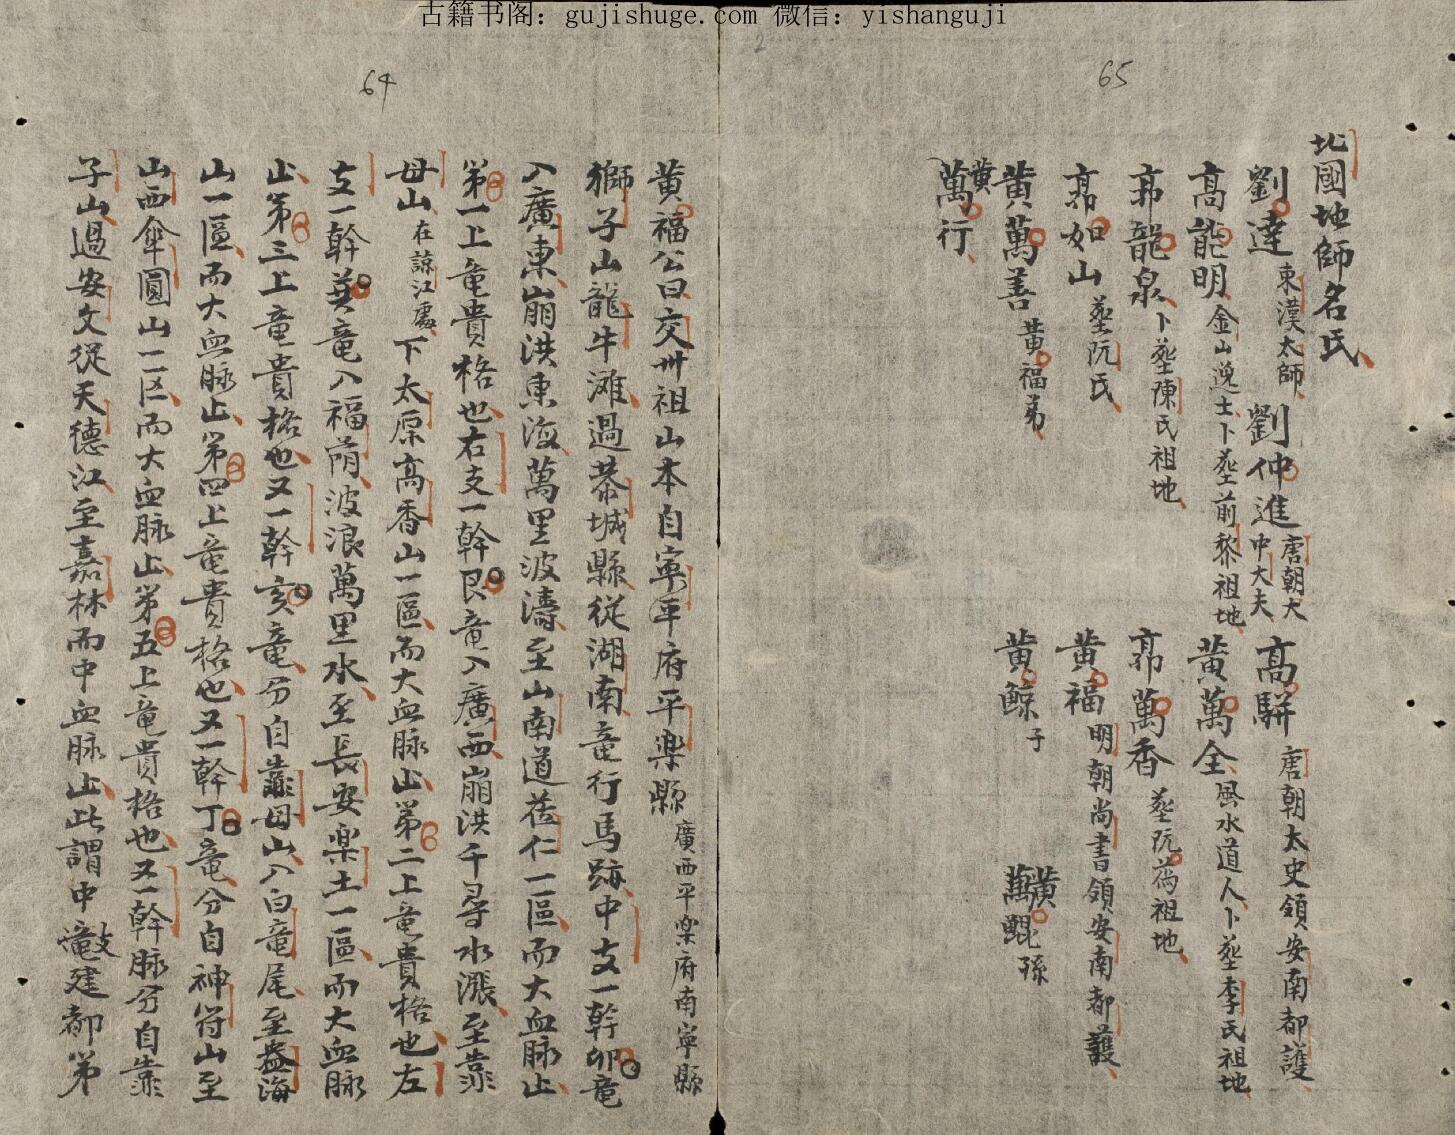 古籍书阁：gujishuge.com 微信：yishanguji
65
北國地師名氏
劉達 東漢太師 劉仲進 唐朝大中大夫 高駢 唐朝太史領安南都護
高能明 金山逸士卜葬前黎祖地 黃萬全 風水道人卜葬李氏祖地
郭龍泉 卜葬陳氏祖地 郭萬香 葬阮為祖地
郭如山 葬阮氏 黃福 明朝尚書領安南都護
黃萬善 黃福弟 黃鯨 子 黃萬鯤 孫
黃萬行
64
黃福公曰交州祖山本自寧平府平楽縣 廣西平楽府南寧縣
獅子山龍牛灘過恭城縣従湖南竜行馬跡中支一幹卯竜
入廣東崩洪東海萬里波濤至山南道莅仁一區而大血脉止
第一上竜貴格也右支一幹艮竜入廣西崩洪千尋水漲至靠
母山 在諒江處 下太原高香山一區而大血脉止第二上竜貴格也左
支一幹巽竜入福蔭波浪萬里水至長安楽土一區而大血脉
止第三上竜貴格也又一幹亥竜分自靠母山入白竜尾至益海
山一區而大血脉止第四上竜貴格也又一幹丁竜分自神符山至
山西傘圓山一区而大血脉止第五上竜貴格也又一幹脉分自靠
子山過安文従天德江至嘉林而中血脉止此謂中支竜建都第